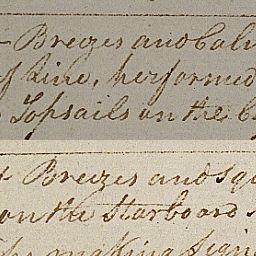 Breezes and Calm
of Line, performed
Topsails on the
Breezes and Squ
on the Starboard
making Sign